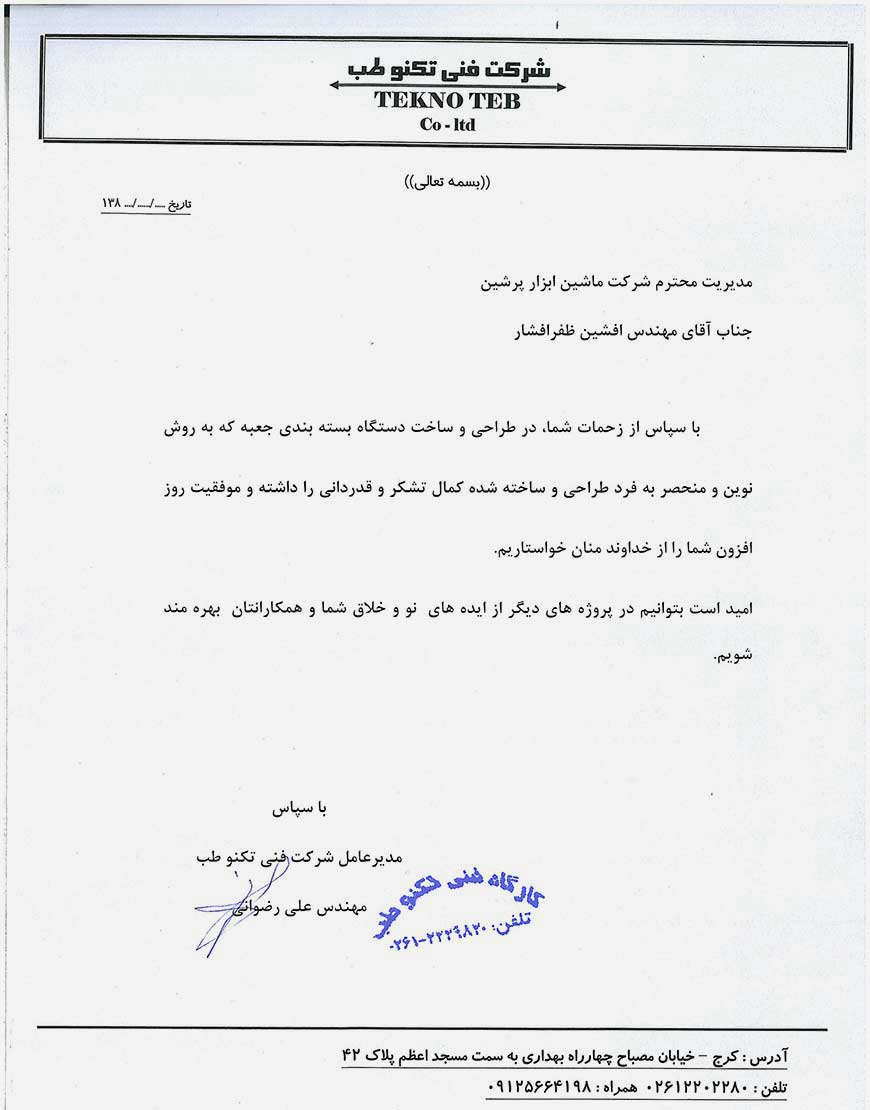 شرکت فنی تکنو طب
TEKNO TEB
Co - ltd
((بسمه تعالی))
تاریخ ..../..../.... ۱۳۸
مدیریت محترم شرکت ماشین ابزار پرشین
جناب آقای مهندس افشین ظفرافشار
با سپاس از زحمات شما، در طراحی و ساخت دستگاه بسته بندی جعبه که به روش
نوین و منحصر به فرد طراحی و ساخته شده کمال تشکر و قدردانی را داشته و موفقیت روز
افزون شما را از خداوند منان خواستاریم.
امید است بتوانیم در پروژه های دیگر از ایده های نو و خلاق شما و همکارانتان بهره مند
شویم.
با سپاس
مدیرعامل شرکت فنی تکنو طب
مهندس علی رضوانی
کارگاه فنی تکنو طب
تلفن: ۰۲۶۱-۲۲۲۹۸۲۰
آدرس : کرج – خیابان مصباح چهارراه بهداری به سمت مسجد اعظم پلاک ۴۲
تلفن : ۰۲۶۱۲۲۰۲۲۸۰ همراه : ۰۹۱۲۵۶۶۴۱۹۸